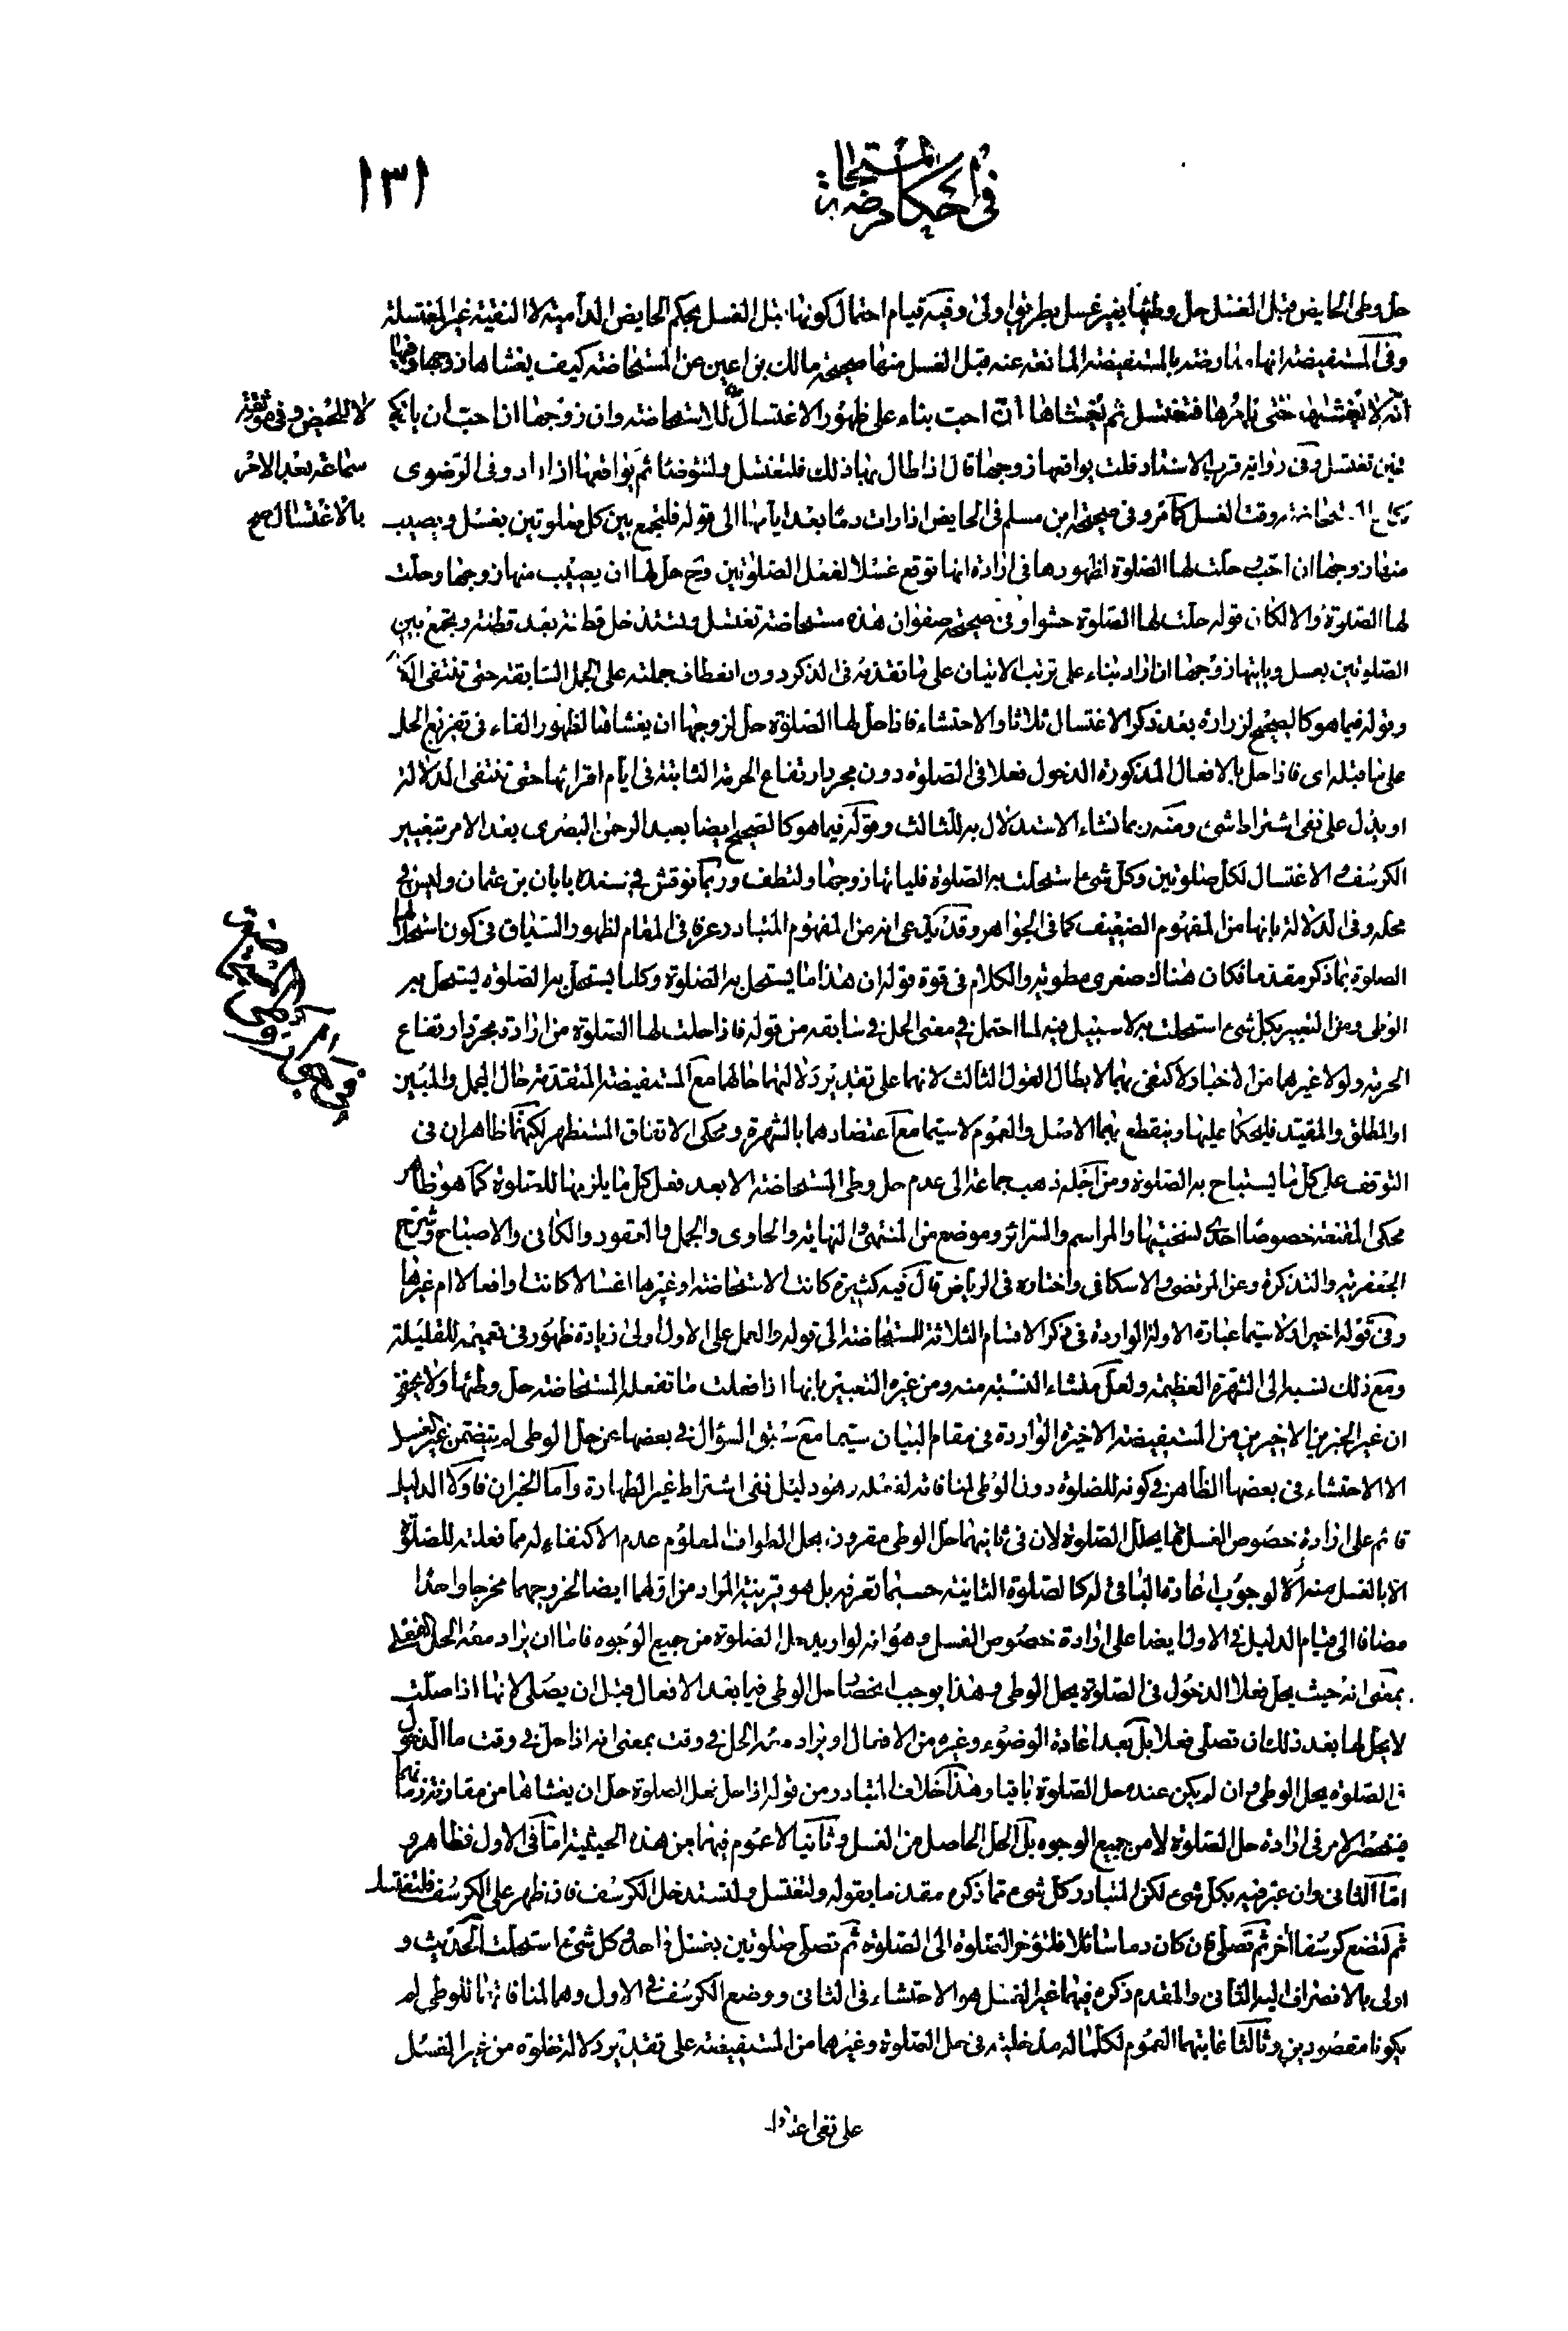 في احكام المستحاضة
١٣١
حل وطى الحايض قبل الغسل حل وطئها بغير غسل بطريق اولى وفيه قيام احتمال كونها قبل الغسل بحكم الحايض الدامية لا النقية غير المغتسلة
وفى المستفيضة انها معارضة بالمستفيضة المانعة عنه قبل الغسل منها صحيحة مالك بن اعين عن المستحاضة كيف يغشاها زوجها وفيها
انه لا يغشيها حتى يامرها فتغتسل ثم يغشاها ان احب بناء على ظهور الاغتسال للاستحاضة وان زوجها اذا احب ان ياتيها
لا للحيض وفى موثقة
سماعة بعد الامر
بالاغتسال صح
فحين تغتسل وفى رواية قرب الاسناد قلت يواقعها زوجها قال اذا طال بها ذلك فلتغتسل ولتتوضأ ثم يواقعها اذا اراد وفى الرضوى
وقت الغسل كما مر وفى صحيحة ابن مسلم فى الحايض اذا رات دما بعد ايامها الى قوله فلتجمع بين كل صلوتين بغسل ويصيب
منها زوجها ان احب وحلت لها الصلوة لظهورها فى ارادة انها توقع غسلا لفعل الصلوتين وح حل لها ان يصيب منها زوجها وحلت
لها الصلوة والا لكان قوله حلت لها الصلوة حشوا وفى صحيحة صفوان هذه مستحاضة تغتسل وتستدخل قطنة بعد قطنة وتجمع بين
الصلوتين بغسل ويابيتها زوجها ان اراد بناء على ترتب الاتيان على ما تقدمه فى الذكر دون انعطاف جملته على الجمل السابقة حتى تنتفى الدلالة
وقوله فيما هو كالصحيح لزرارة بعد ذكر الاغتسال ثلاثا والاحتشاء فاذا حل لها الصلوة حل لزوجها ان يغشاها لظهور الفاء فى تفريع الحل
على ما قبله اى فاذا حل بالافعال المذكورة الدخول فعلا فى الصلوة دون مجرد ارتفاع الحرمة الثابتة فى ايام اقرائها حتى تنتفى الدلالة
او يدل على نفى اشتراط شئ ومنه ربما نشاء الاستدلال به للثالث وقوله فيما هو كالصحيح ايضا بعبد الرحمن البصرى بعد الامر بتغيير
الكرسف والاغتسال لكل صلوتين وكل شئ استحلت به الصلوة فلياتها زوجها ولتطف وربما نوقش فى سنده بابان بن عثمان وليس فى
محله وفى الدلالة بانها من المفهوم الضعيف كما فى الجواهر وقد يدعى انه من المفهوم المتبادر عرفا فى المقام لظهور السياق فى كون استحلال
الصلوة بما ذكر مقدما فكان هناك صغرى مطوية والكلام فى قوة قوله ان هذا ما يستحل به الصلوة وكلما يستحل به الصلوة يستحل به
الوطى ومن التعبير بكل شئ استحلت به لا سبيل فيه لما احتمل فى معنى الحل فى سابقه من قوله فاذا حلت لها الصلوة من ارادة مجرد ارتفاع
الحرمة ولولا غيرهما من الاخبار لاكتفى بهما لابطال القول الثالث لانهما على تقدير دلالتهما حالهما مع المستفيضة المتقدمة حال المجمل والمبين
او المطلق والمقيد فليحكما عليها وينقطع بهما الاصل والعموم لا سيما مع اعتضادهما بالشهرة ومحكى الاتفاق المستظهر لكنهما ظاهران فى
التوقف على كل ما يستباح به الصلوة ومن اجله ذهب جماعة الى عدم حل وطى المستحاضة الا بعد فعل كل ما يلزمها للصلوة كما هو ظاهر
محكى المقنعة خصوصا احدى نسختيها والمراسم والسرائر وموضع من المنتهى والنهاية والحاوى والجمل والعقود والكافى والاصباح وشرح
الجعفرية والتذكرة وعن المرتضى والاسكافى واختاره فى الرياض قال فيه كثيرة كانت الاستحاضة او غيرها اغسالا كانت او افعالا ام غيرها
وفى قوله اخيرا لا سيما عبارة الاولة الواردة فى ذكر الاقسام الثلاثة للمستحاضة الى قوله والعمل على الاول اولى زيادة ظهور فى تعميمه للقليلة
ومع ذلك نسبه الى الشهرة العظيمة ولعل منشاء النسبة منه ومن غيره التعبير بانها اذا فعلت ما تفعله المستحاضة حل وطئها ولا يخفى
ان غير الخبرين الاخيرين من المستفيضة الاخيرة الواردة فى مقام البيان سيما مع سبق السؤال فى بعضها عن حل الوطى لم يتضمن غير الغسل
الا الاحتشاء فى بعضها الظاهر فى كونه للصلوة دون الوطى لمنافاته لفعله وهو دليل نفى اشتراط غير الطهارة واما الخبران فاولا الدليل
قائم على ارادة خصوص الغسل مما يحلل الصلوة لان فى ثانيهما حل الوطى مقرون بحل الطواف المعلوم عدم الاكتفاء له مما فعلته للصلوة
الا بالغسل منه لوجوب اعادة الباقى له كالصلوة الثانية حسبما تعرفه بل هو قرينة المراد من اولهما ايضا لخروجهما مخرجا واحدا
مضافا الى قيام الدليل فى الاول ايضا على ارادة خصوص الغسل وهو انه لو اريد حل الصلوة من جميع الوجوه فاما ان يراد معه الحل الفعلى
بمعنى انه حيث يحل فعلا الدخول فى الصلوة يحل الوطى وهذا يوجب انحصار حل الوطى فيما بعد الافعال قبل ان يصلى لانها اذا صلت
لا يحل لها بعد ذلك ان تصلى فعلا بل بعد اعادة الوضوء وغيره من الافعال او يراد منه الحل فى وقت بمعنى انه اذا حل فى وقت ما الدخول
فى الصلوة يحل الوطى وان لم يكن عنده حل الصلوة باقيا وهذا خلاف المتبادر من قوله اذا حل فعل الصلوة حل ان يغشاها من مقارنة زمانهما
فينحصر الامر فى ارادة حل الصلوة لا من جميع الوجوه بل الحل الحاصل من الغسل وثانيا لا عموم فيهما من هذه الحيثية اما فى الاول فظاهر و
اما الثانى وان عبر فيه بكل شئ لكن المتبادر كل شئ مما ذكره مقدما بقوله ولتغتسل ولتستدخل الكرسف فان ظهر على الكرسف فلتغتسل
ثم لتضع كرسفا اخر ثم تصلى فان كان دما سائلا فلتؤخر الصلوة الى الصلوة ثم تصلى صلوتين بغسل واحد وكل شئ استحلت الحديث و
اولى بالانصراف اليه الثانى والمقدم ذكره فيهما غير الغسل هو الاحتشاء فى الثانى ووضع الكرسف فى الاول وهما لمنافاتهما للوطى لم
يكونا مقصودين وثالثا غايتهما العموم لكلما له مدخلية فى حل الصلوة وغيرهما من المستفيضة على تقدير دلالة خلوه من غير الغسل
على نفى اعتبار